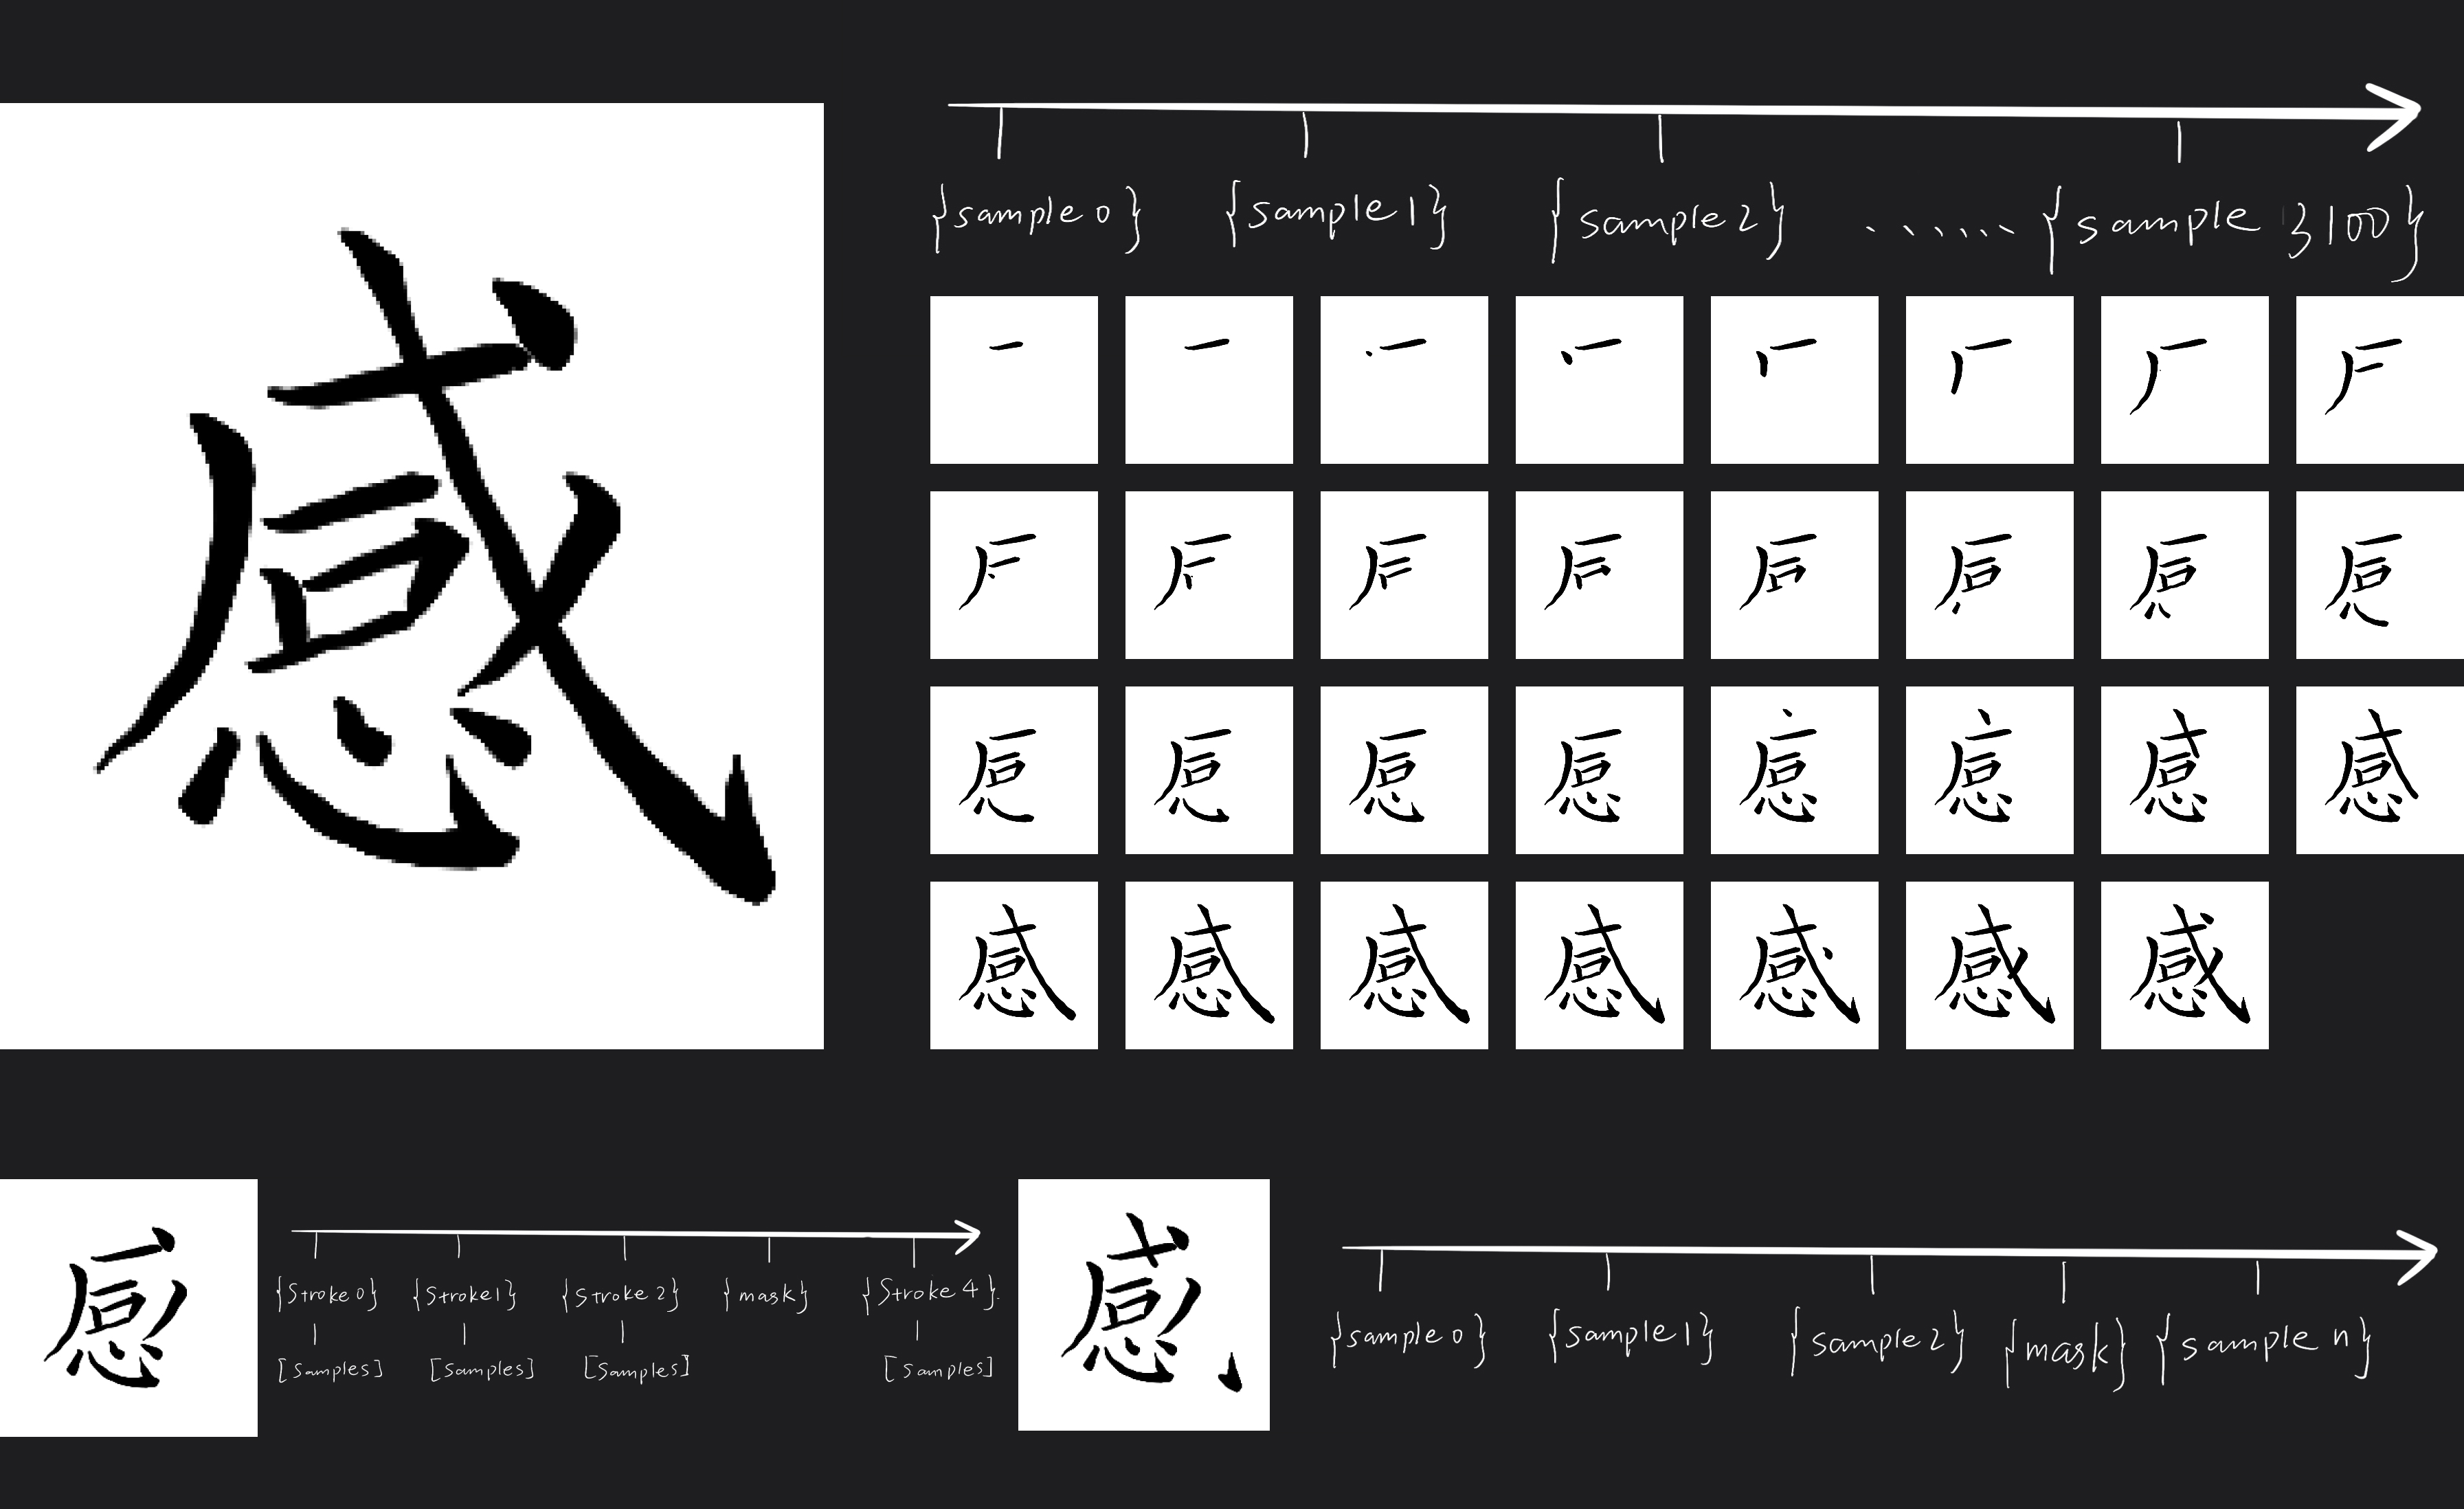 感
{sample 0} {sample 1} {sample 2} ...... {sample 3100}
{Stroke 0} {Stroke 1} {Stroke 2} {mask} {Stroke 4}
[Samples] [Samples] [Samples] [Samples]
{sample 0} {sample 1} {sample 2} {mask} {sample n}